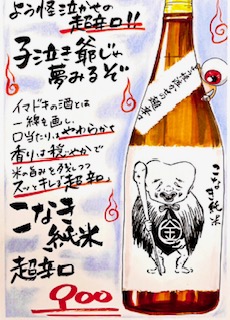 よう怪泣かせの
超辛口!!
子泣き爺じゃ
夢みるぞ
イマドキの酒とは
一線を画し、
口当たりはやわらかく
香りは穏やかで
米の旨みを残しつつ
スッとキレる「超辛」
こなき
純米
超辛口
900
こなき純米
金